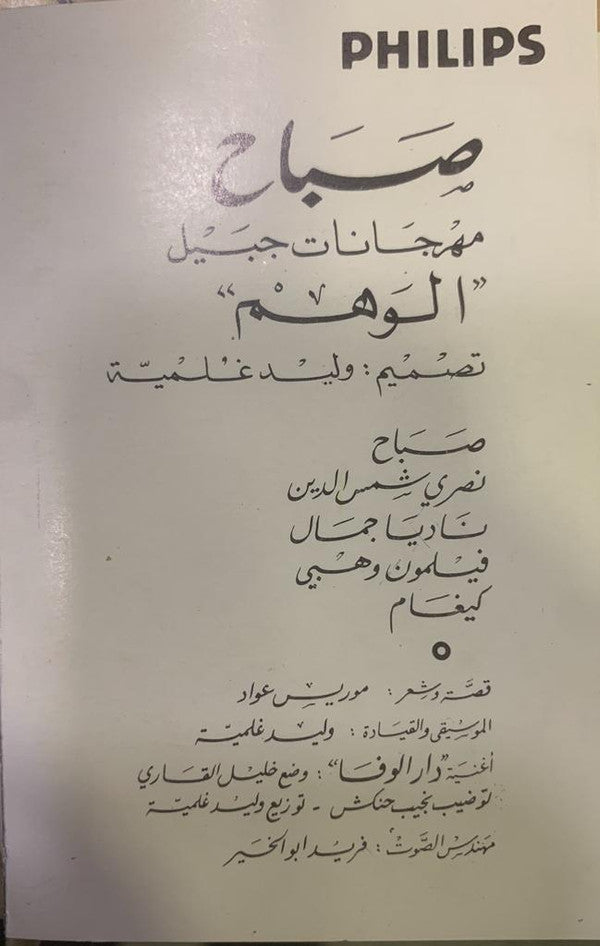 PHILIPS
صباح
مهرجانات جبيل
"الوهم"
تصميم: وليد غلمية
صباح
نصري شمس الدين
ناديا جمال
فيلمون وهبي
كيغام
قصة وشعر: موريس عواد
الموسيقى والقيادة: وليد غلمية
أغنية "دار الوفا": وضع خليل القاري
توضيب نجيب حنكش - توزيع وليد غلمية
مهندس الصوت: فريد ابو الخير